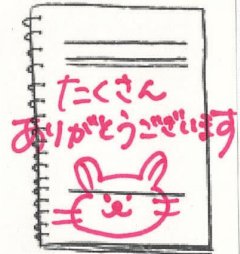 たくさん
ありがとうございます